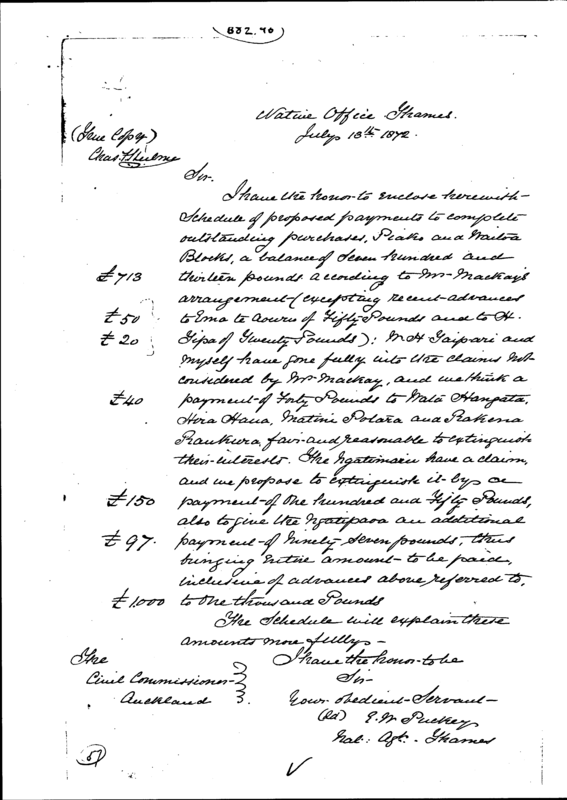 882.90
Native Office Thames.
July 13th 1872.
(True Copy)
Sir.
I have the honor to enclose herewith
Schedule of proposed payments to complete
outstanding purchases, Piako and Waitoa
Blocks, a balance of Seven hundred and
£713 thirteen pounds according to Mr Mackay's
arrangement (excepting recent advances
£50 to Ema te Aouru of Fifty Pounds and to H.
£20 Tipa of Twenty Pounds): W H Taipari and
myself have gone fully into the claims not
considered by Mr Mackay, and we think a
£40 payment of Forty Pounds to Wata Hangata,
Hira Haua, Matini Potara and Rakena
fair and reasonable to extinguish
their interests. The Ngatimaru have a claim,
and we propose to extinguish it by a
£150 payment of One hundred and Fifty Pounds,
also to give the Ngatipaoa an additional
£97. payment of Ninety Seven pounds, thus
bringing entire amount to be paid,
inclusive of advances above referred to,
£1.000 to One thousand Pounds
The Schedule will explain these
amounts more fully -
I have the honor to be
Sir
Your obedient Servant
E. W. Puckey
Nat: Agt. Thames
The
Civil Commissioner
Auckland